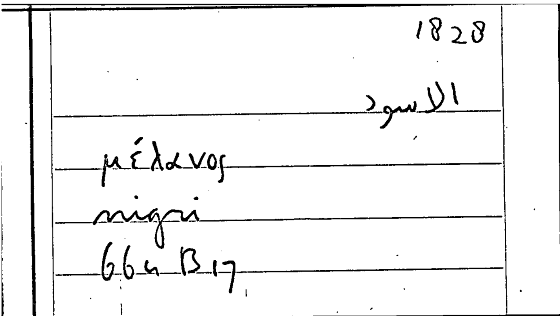 1828
الاسود
μέλανος
nigri
66a B 17